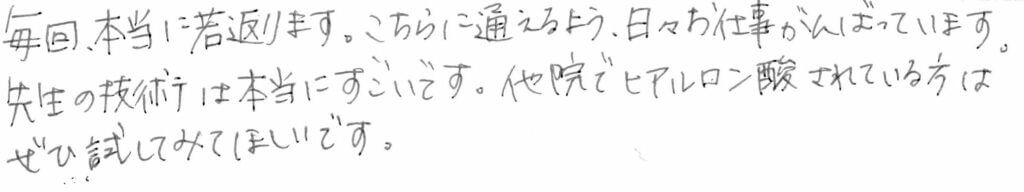 毎回、本当に若返ります。こちらに通えるよう、日々お仕事がんばっています。
先生の技術は本当にすごいです。他院でヒアルロン酸されている方は
ぜひ試してみてほしいです。